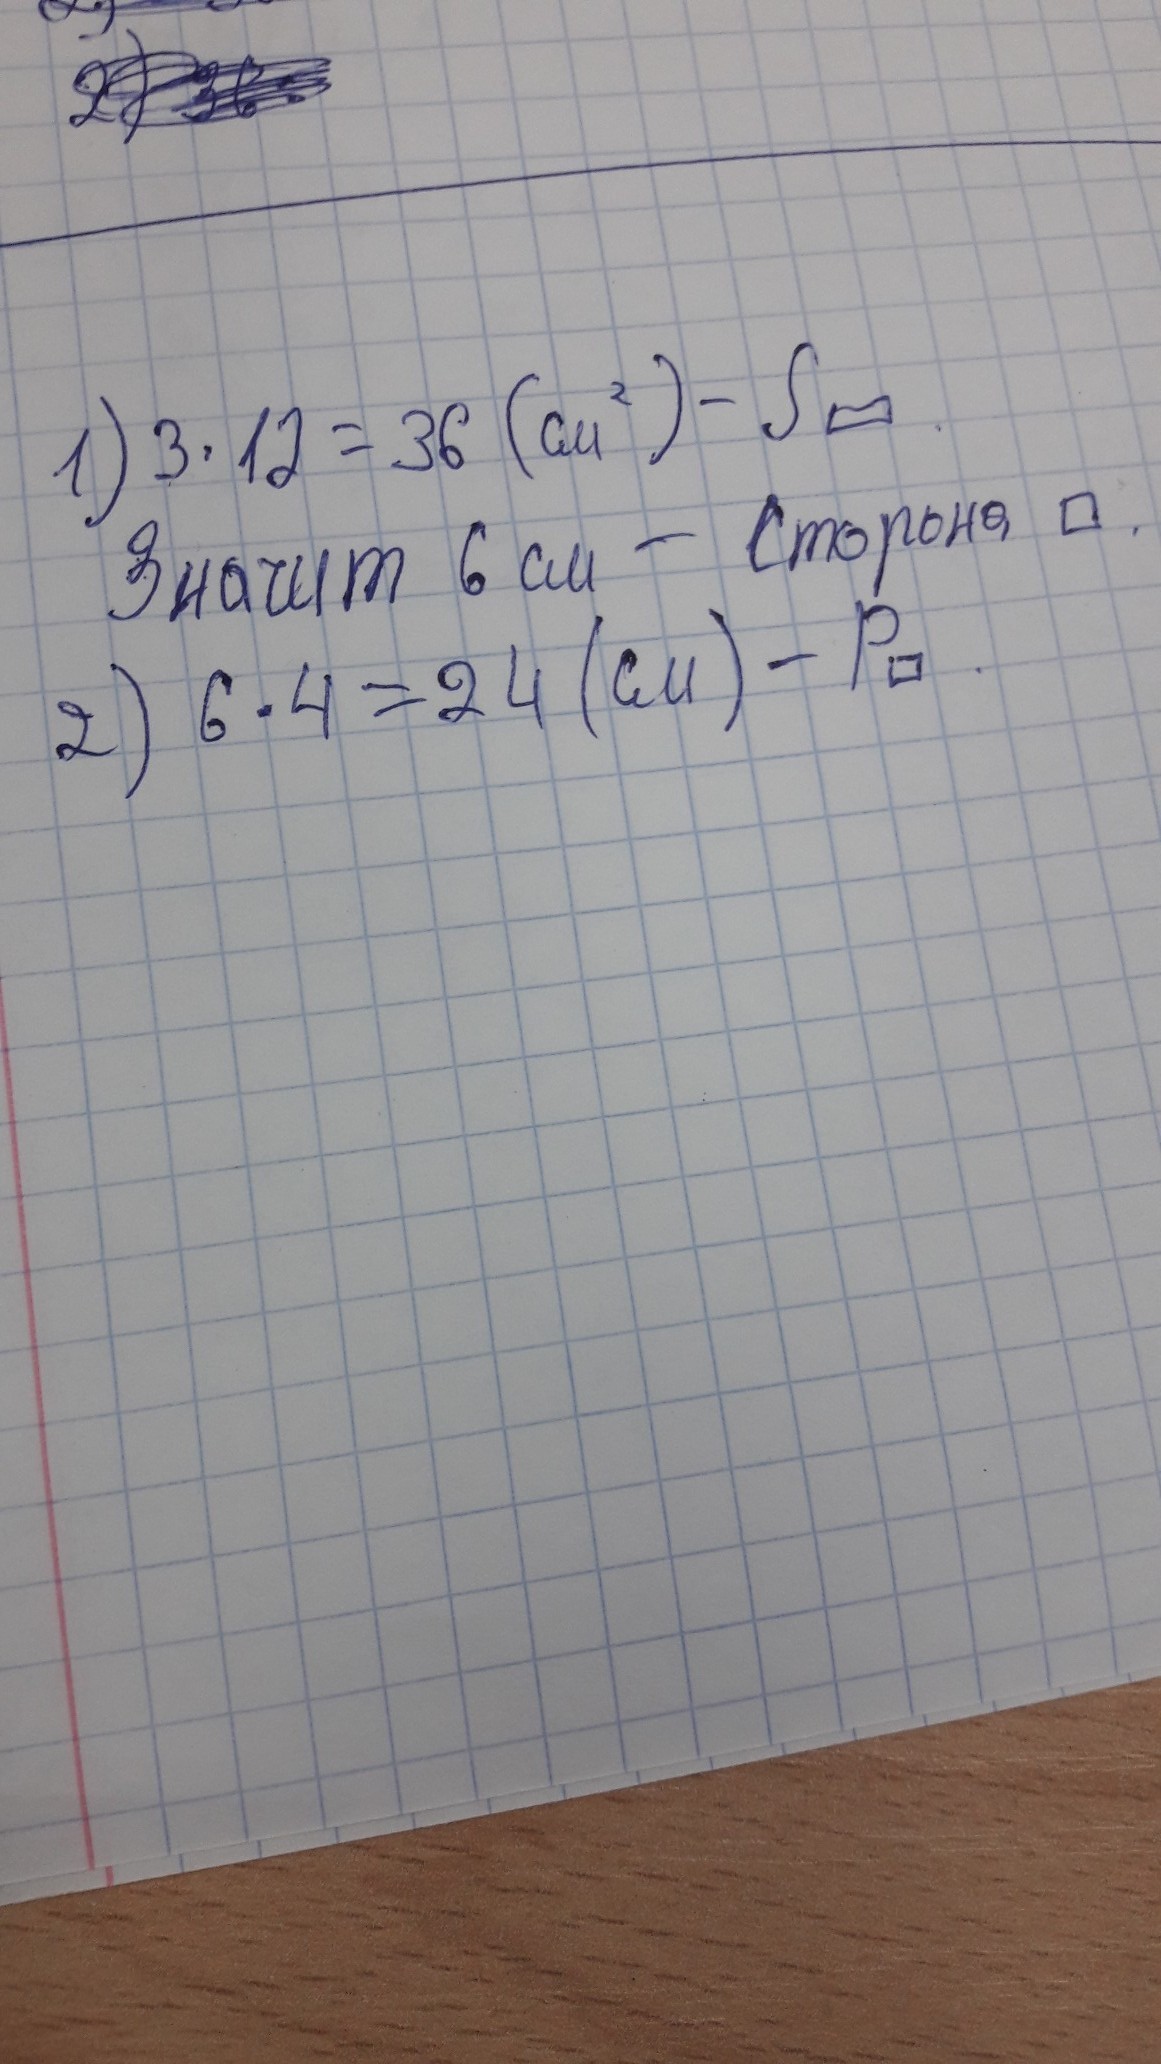 1) 3 · 12 = 36 (см²) - S▭.
Значит 6 см - сторона □.
2) 6 · 4 = 24 (см) - P□.